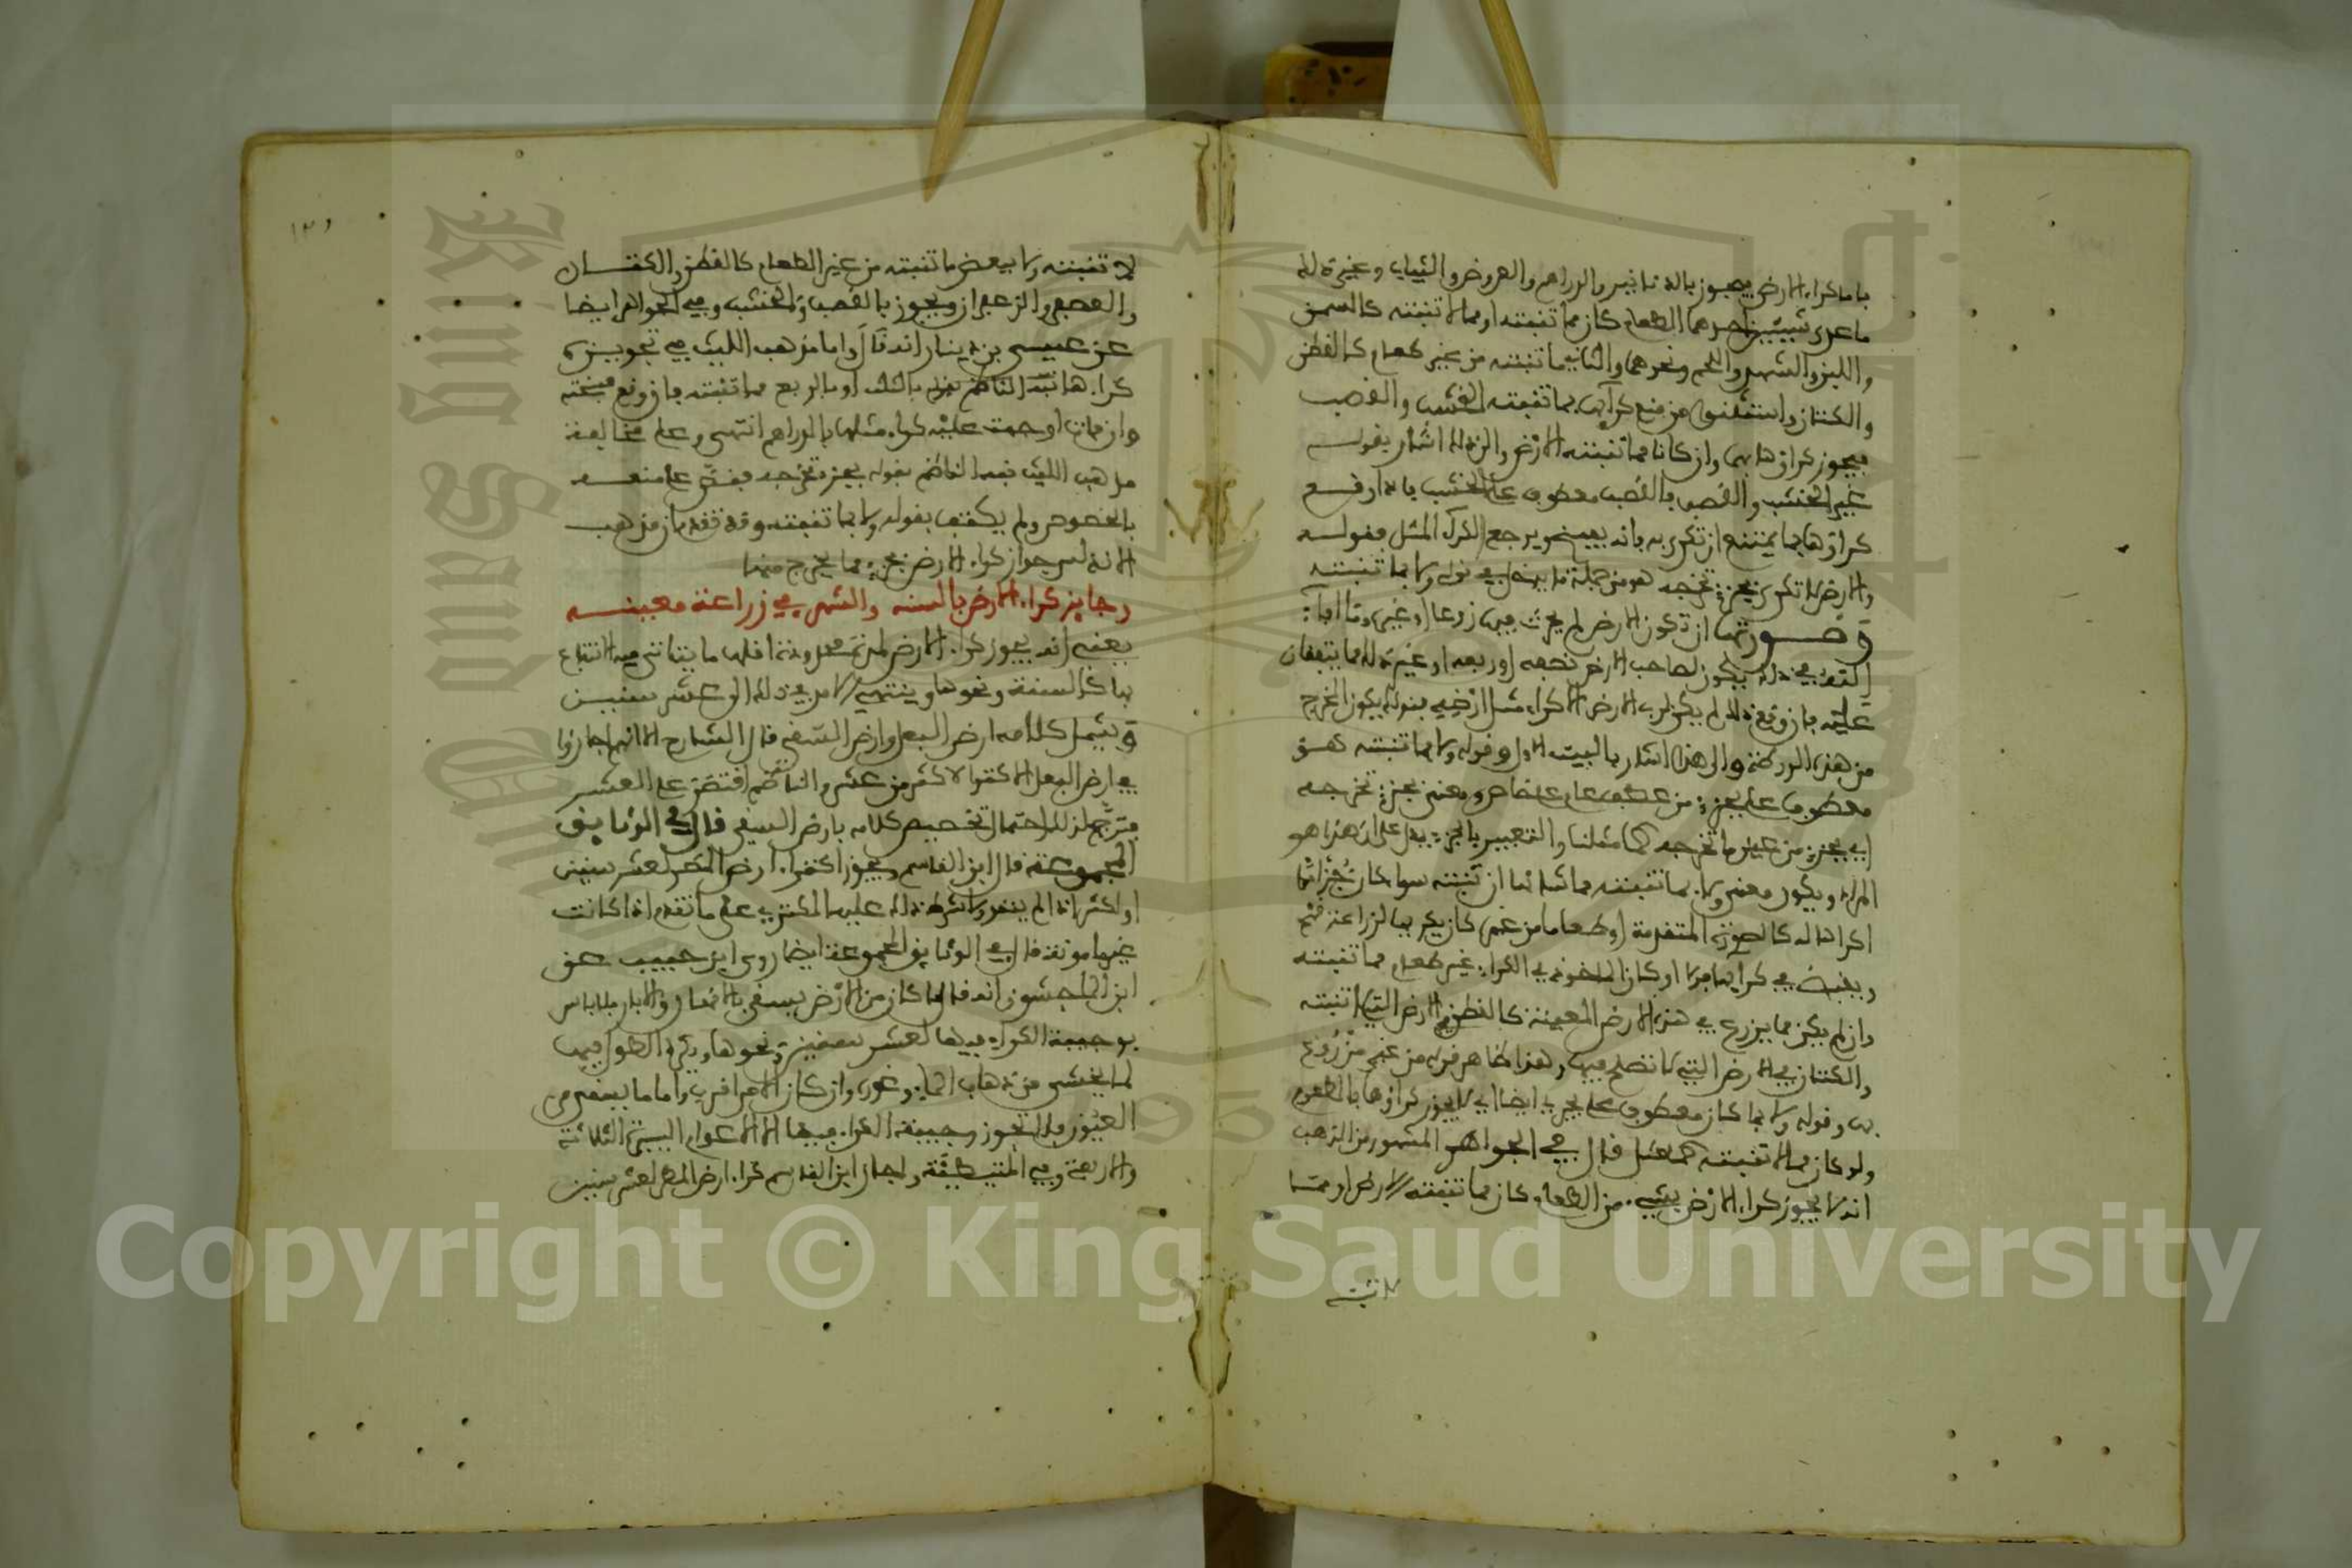 باما كراء الارض فيجوز بالدنانير والدراهم والعروض والثياب وغير ذلك
ما عدى شيئين احدهما الطعام كان مما تنبته او مما لا تنبته كالسمن
واللبن والشهد واللحم ونحوها والثاني ما تنبته من غير طعام كالقطن
والكتان واستثنوا من منع كرائها بما تنبته الخشب والقصب
فيجوز كراؤها بهما وان كانا مما تنبته الارض والى ذلك اشار بقوله
غير الخشب والقصب فالقصب معطوف على الخشب فان وقع
كراؤها بما يمتنع ان تكرى به فانه يفسخ ويرجع لكراء المثل فقوله
والارض لا تكرى بجزء تخرجه هو من جملة ما يدخل في قوله ولا بما تنبته
وصورتها ان تكون الارض لم يحرث فيها زرعا او غيره وقال
التقى في ذلك يكون لصاحب الارض نصفه او ربعه او غير ذلك مما يتفقان
عليه فان وقع ذلك لم يكن لرب الارض الا كراء مثل ارضه
من هذه والى هذا اشار بالبيت الاول وقوله ولا بما تنبته هو
معطوف على بجزء من عطف عام على خاص ومعنى بجزء تخرجه
اي بجزء من عين ما تخرجه كما مثلنا والتعبير بالجزء يدل على ان هذا هو
المراد ويكون معنى ولا بما تنبته مما شانها ان تنبته سوا كان جزءا
اكراء ذلك كالصورة المتقدمة او طعاما من غيره كان يكريها لزراعة قمح
ويقبض في كرائها او كان الماخوذ في الكراء غير طعام مما تنبته
وان لم يكن مما يزرع في هذه الارض المعينة كالقطن في الارض التي لا تنبته
والكتان في الارض التي لا تصلح فيها وهذا ظاهر قوله من غير مزروع
بها وقوله ولا بما كان معطوف على بجزء ايضا اي لا يجوز كراؤها بالطعام
ولو كان مما لا تنبته كعسل قال في الجواهر المشهور من المذهب
انه لا يجوز كراء الارض بشيء من الطعام كان مما تنبته الارض او مما
لا تنبته
لا تنبته ولا ببعض ما تنبته من غير الطعام كالقطن والكتان
والعصفر والزعفران ويجوز بالقصب والخشب وفي الجواهر ايضا
عن عيسى بن دينار انه قال واما مذهب الليث في تجويزه
كراءها بالثلث او بالربع مما تنبته فان وقع فسخته
وان فات اوجبت عليه كراء مثلها بالدراهم انتهى وعلى مخالفة
مذهب الليث نبه الناظم بقوله بجزء تخرجه فنص على منعه
بالخصوص ولم يكتف بقوله ولا بما تنبته وقد تقدم ان مذهب
الاندلس جواز كراء الارض بجزء مما يخرج منها
وجايز كراء الارض بالسنه والشهر في زراعة معينه
يعني انه يجوز كراء الارض لمدة معلومة اقلها ما يتاتى فيه الانتفاع
بها كالسنة ونحوها وينتهي الامر في ذلك الى عشر سنين
ويشمل كلامه ارض البعل وارض السقي قال الشارح الا انهم اجازوا
في ارض البعل الاكترا لاكثر من عشر والناظم اقتصر على العشر
فترجح لذلك احتمال تخصيص كلامه بارض السقي قال في الوثايق
المجموعة قال ابن القاسم ويجوز اكترا ارض المطر لعشر سنين
او اكثر اذا لم ينقد ولا شرط ذلك عليه المكتري على ما تقدم اذا كانت
غير مامونة قال في الوثايق المجموعة ايضا روى ابن حبيب عن
ابن الماجشون انه قال ما كان من الارض يسقى بالانهار والابار فلا باس
بوجيبة الكراء فيها لعشر سنين ونحوها ويكره الطول فيها
لما يخشى من ذهاب الماء وغوره وان كان الامر اقرب واما ما يسقى من
العيون فلا تجوز وجيبة الكراء فيها الا الاعوام اليسيرة الثلاثة
والاربعة وفي المتيطية واجاز ابن القاسم كراء ارض المطر لعشر سنين